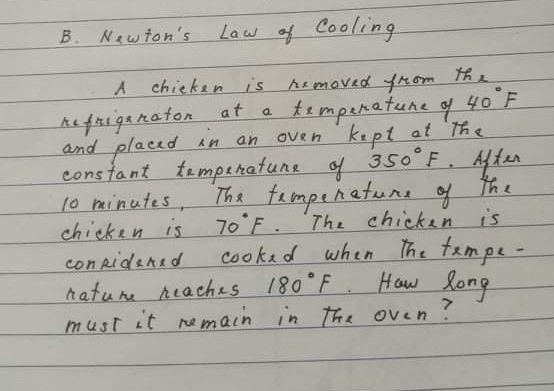 B. Newton's Law of Cooling
A chicken is removed from the
refrigerator at a temperature of 40°F
and placed in an oven kept at the
constant temperature of 350°F. After
10 minutes, The temperature of the
chicken is 70°F. The chicken is
considered cooked when the tempe-
rature reaches 180°F. How long
must it remain in the oven?